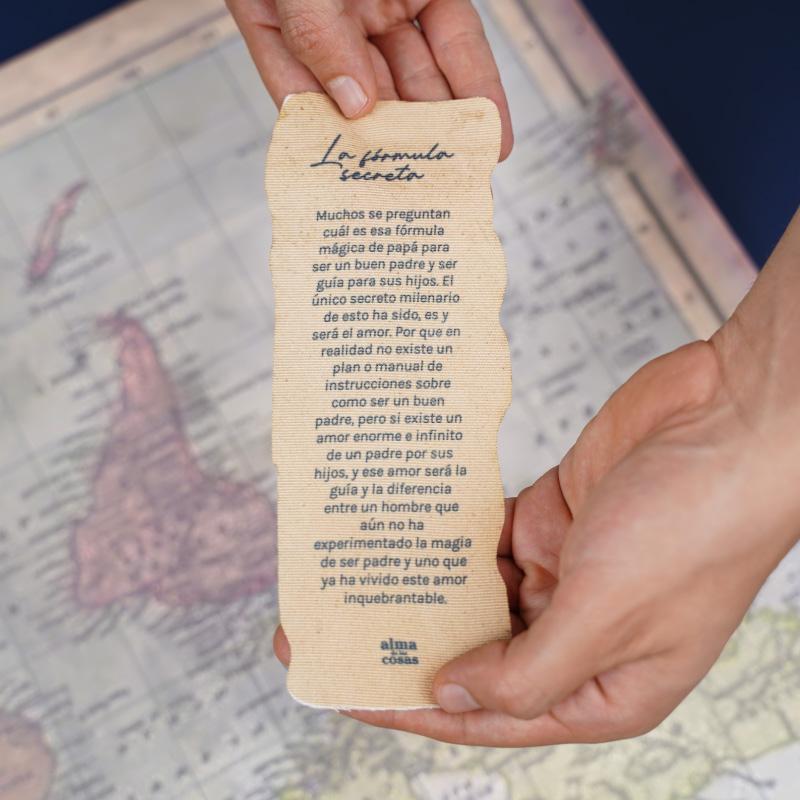 La fórmula
secreta
Muchos se preguntan
cuál es esa fórmula
mágica de papá para
ser un buen padre y ser
guía para sus hijos. El
único secreto milenario
de esto ha sido, es y
será el amor. Por que en
realidad no existe un
plan o manual de
instrucciones sobre
como ser un buen
padre, pero si existe un
amor enorme e infinito
de un padre por sus
hijos, y ese amor será la
guía y la diferencia
entre un hombre que
aún no ha
experimentado la magia
de ser padre y uno que
ya ha vivido este amor
inquebrantable.
alma
cosas